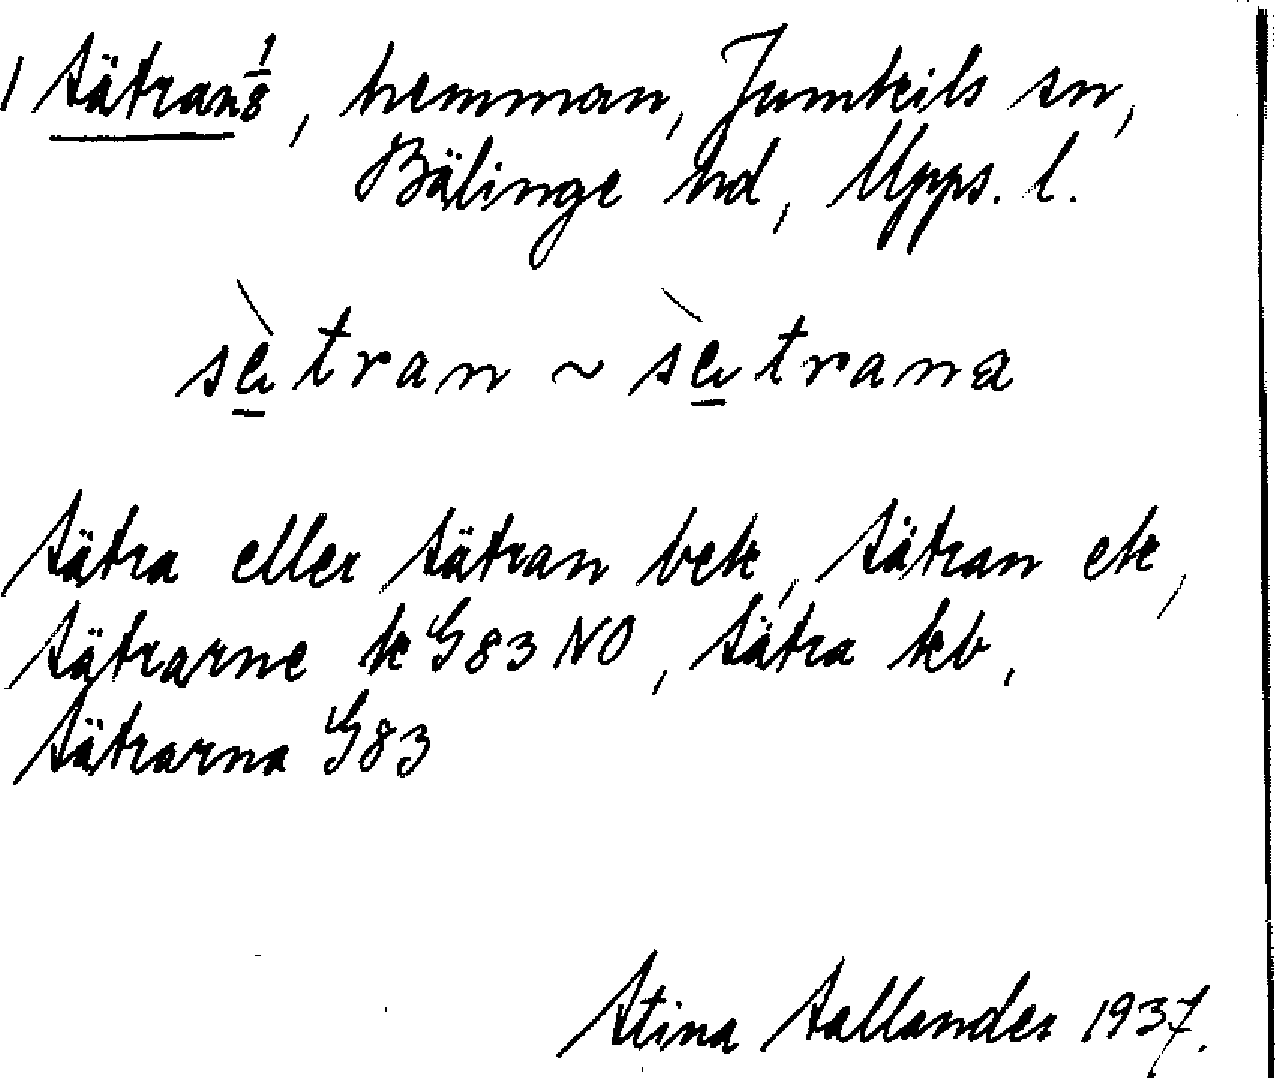 1 Sätran 1/8, hemman, Jumkils sn,
Bälinge hd, Upps. l.
sæ̀tran ~ sæ̀trana
Sätra eller Sätran bek, Sätran ek,
Sätrarne k G83 NO, Sätra kb,
Sätrarna G83
Stina Sallander 1937.